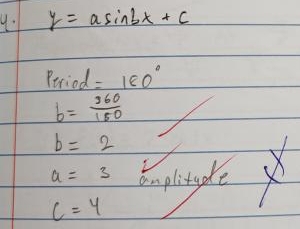 4. y = asinbx + c
Period = 180°
b = 360/180
b = 2
a = 3 amplitude
c = 4